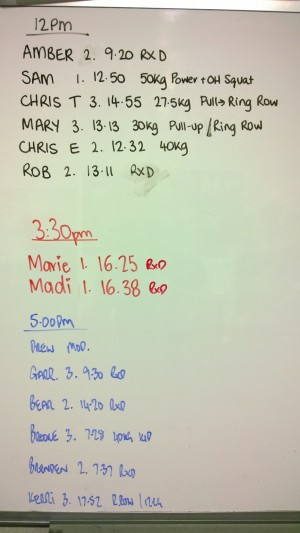 12pm
AMBER 2. 9.20 RXD
SAM 1. 12.50 50kg Power + OH Squat
CHRIS T 3. 14.55 27.5kg Pull→Ring Row
MARY 3. 13.13 30kg Pull-up/Ring Row
CHRIS E 2. 12.32 40kg
ROB 2. 13.11 RXD
3:30pm
Marie 1. 16.25 RXD
Madi 1. 16.38 RXD
5.00pm
DREW MOD.
3. 9.30 RXD
BEAR 2. 14.20 RXD
BROOKE 3. 7.28
BRENDEN 2. 7.37 RXD
KERRI 3. 17.52 R ROW